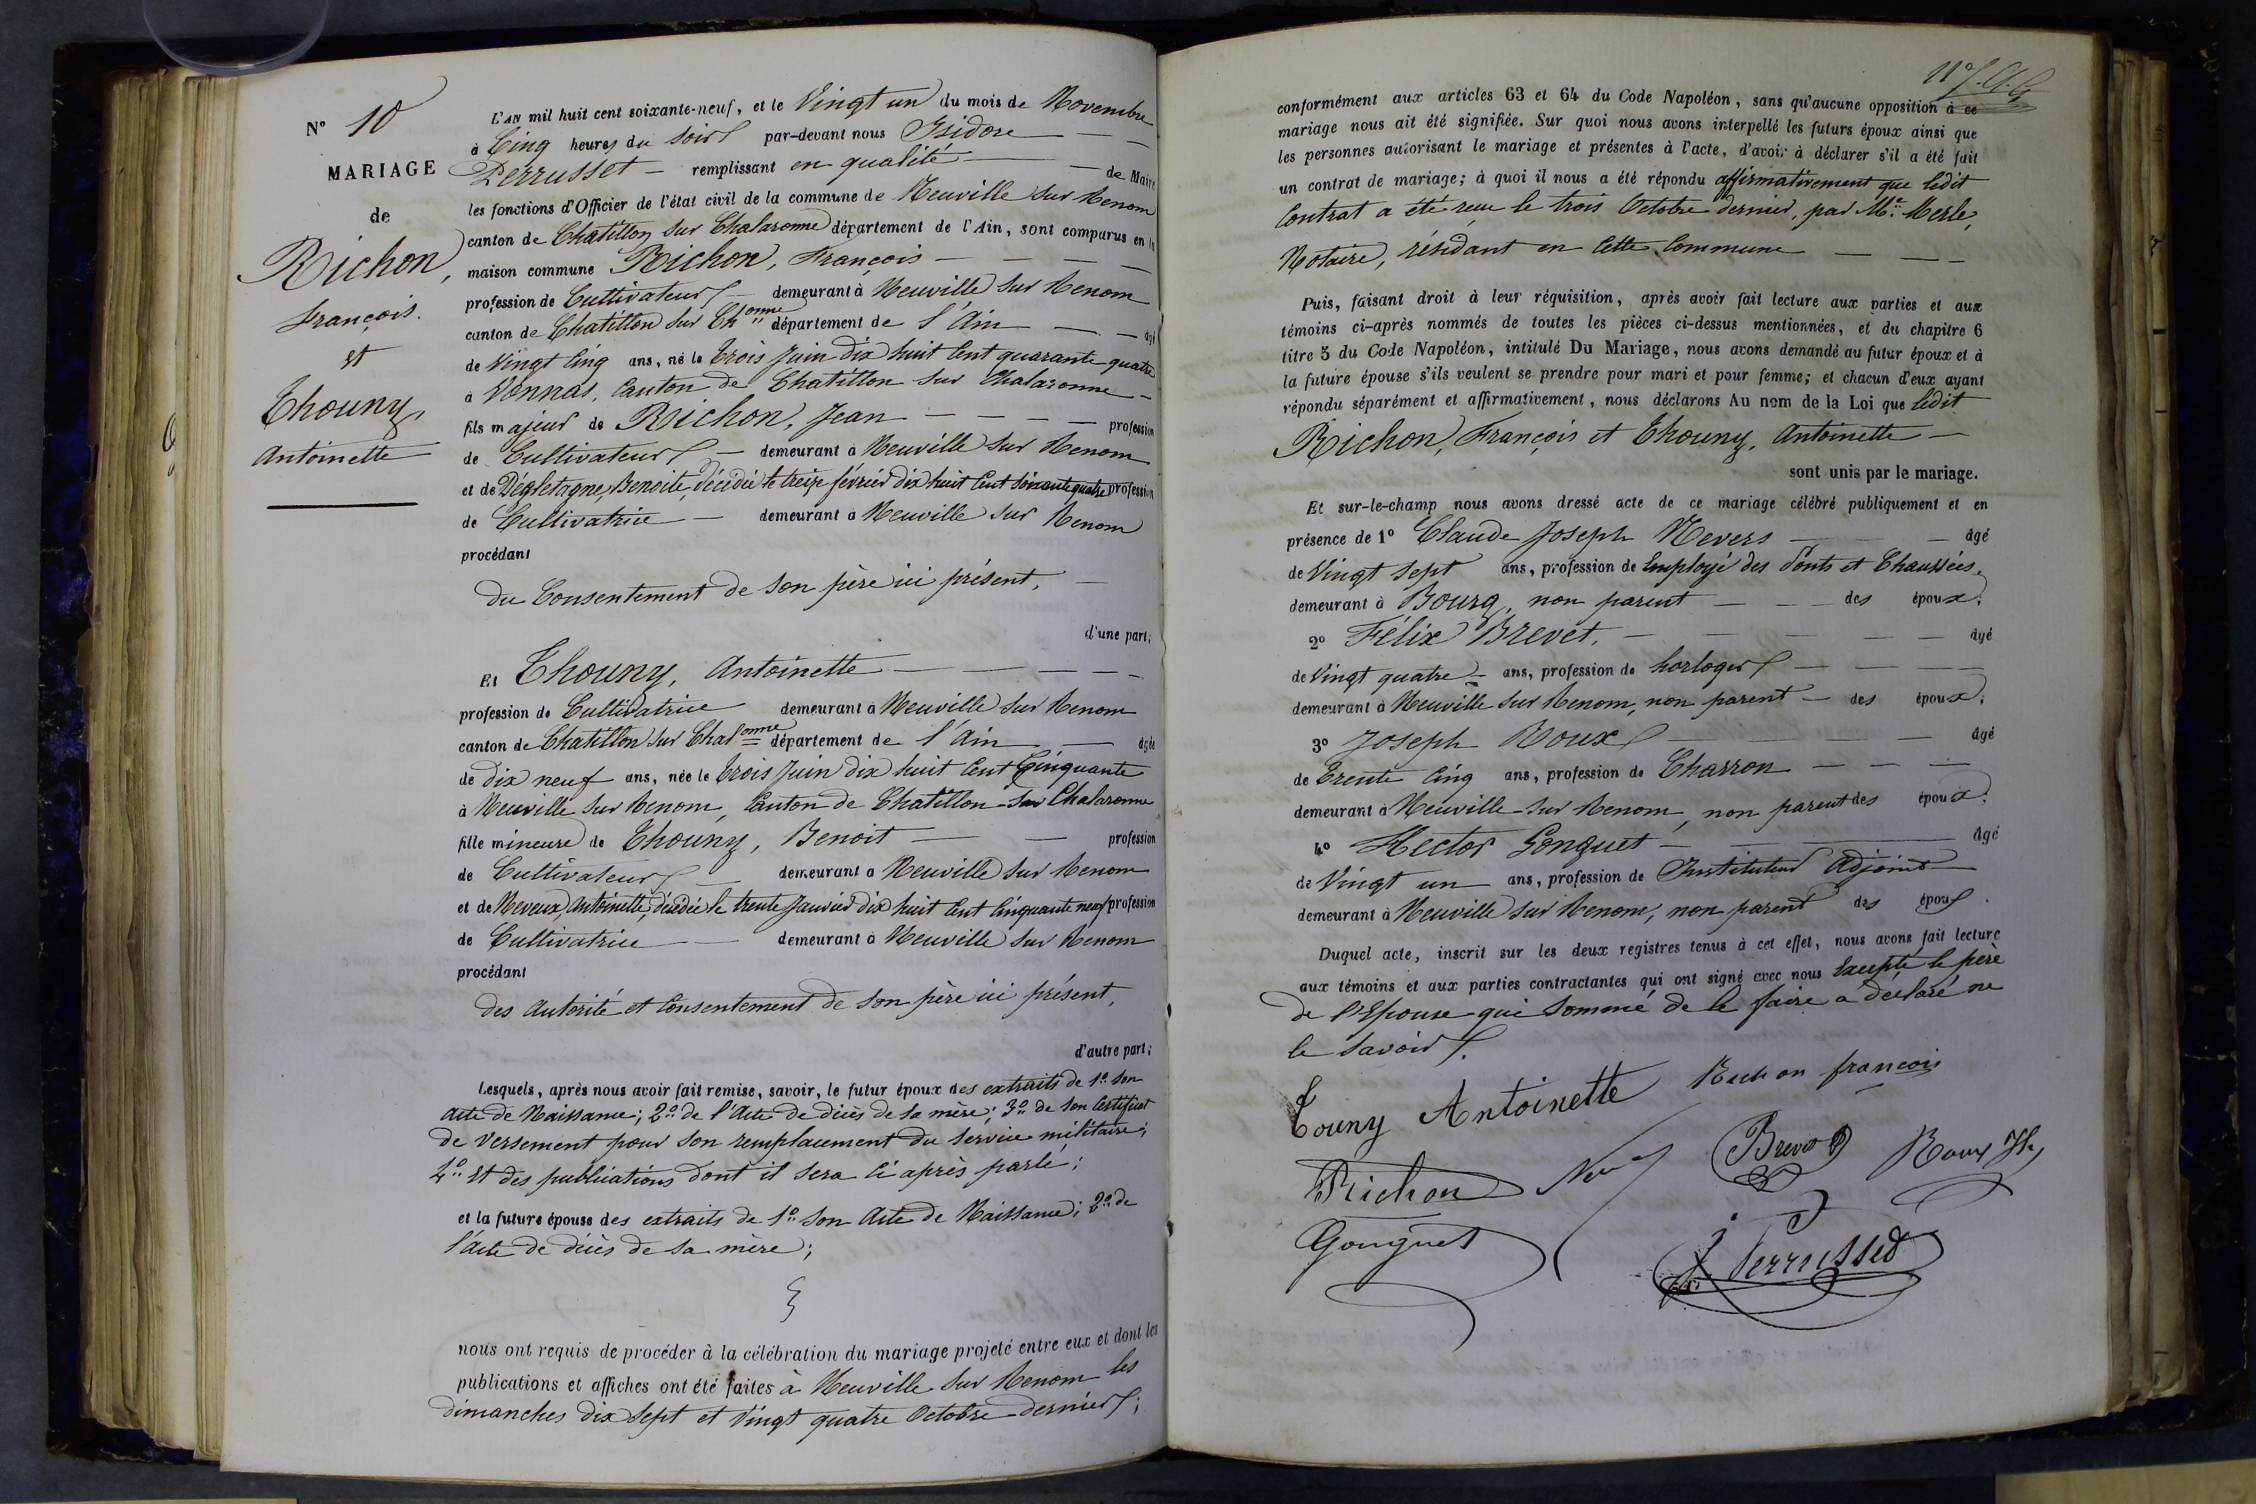 N° 10
MARIAGE
de
Richon,
François.
et
Thouny,
Antoinette
L'AN mil huit cent soixante-neuf, et le Vingt un du mois de Novembre
à Cinq heures du Soir par-devant nous Isidore
Perrusset — remplissant en qualité — de Maire
les fonctions d'Officier de l'état civil de la commune de Neuville sur Renom
canton de Chatillon sur Chalaronne département de l'Ain, sont comparus en la
maison commune Richon, François — — — —
profession de Cultivateur — demeurant à Neuville sur Renom
canton de Chatillon sur Ch onne département de l'Ain — — âgé
de Vingt Cinq ans, né le trois Juin dix huit Cent quarante quatre
à Vonnas, Canton de Chatillon sur Chalaronne —
fils majeur de Richon, Jean — — — profession
de Cultivateur — demeurant à Neuville sur Renom
et de Dégletagne, Benoite, décédée le treize février dix huit Cent Soixante quatre profession
de Cultivatrice — demeurant à Neuville sur Renom
procédant
du Consentement de son père ici présent, —
d'une part;
Et Thouny, Antoinette — — — — —
profession de Cultivatrice demeurant à Neuville sur Renom
canton de Chatillon sur Chal onne département de l'Ain — âgée
de dix neuf ans, née le trois Juin dix huit Cent Cinquante
à Neuville sur Renom, Canton de Chatillon sur Chalaronne
fille mineure de Thouny, Benoit — — profession
de Cultivateur — demeurant à Neuville sur Renom
et de Neveux, Antoinette, décédée le trente Janvier dix huit Cent Cinquante neuf profession
de Cultivatrice — demeurant à Neuville sur Renom
procédant
des Autorité et Consentement de son père ici présent,
d'autre part;
Lesquels, après nous avoir fait remise, savoir, le futur époux des extraits de 1° son
acte de Naissance; 2° de l'acte de décès de sa mère; 3° de son Certificat
de versement pour son remplacement du service militaire;
4° et des publications dont il sera ci après parlé;
et la future épouse des extraits de 1° son Acte de Naissance; 2° de
l'Acte de décès de sa mère;
nous ont requis de procéder à la célébration du mariage projeté entre eux et dont les
publications et affiches ont été faites à Neuville sur Renom les
dimanches dix sept et Vingt quatre Octobre dernier;
conformément aux articles 63 et 64 du Code Napoléon, sans qu'aucune opposition à ce
mariage nous ait été signifiée. Sur quoi nous avons interpellé les futurs époux ainsi que
les personnes autorisant le mariage et présentes à l'acte, d'avoir à déclarer s'il a été fait
un contrat de mariage; à quoi il nous a été répondu affirmativement que ledit
Contrat a été reçu le trois Octobre dernier, par Me Merle,
Notaire, résidant en Cette Commune — — —
Puis, faisant droit à leur réquisition, après avoir fait lecture aux parties et aux
témoins ci-après nommés de toutes les pièces ci-dessus mentionnées, et du chapitre 6
titre 5 du Code Napoléon, intitulé Du Mariage, nous avons demandé au futur époux et à
la future épouse s'ils veulent se prendre pour mari et pour femme; et chacun d'eux ayant
répondu séparément et affirmativement, nous déclarons Au nom de la Loi que ledit
Richon, François et Thouny, Antoinette —
sont unis par le mariage.
Et sur-le-champ nous avons dressé acte de ce mariage célébré publiquement et en
présence de 1° Claude Joseph Nevers — — âgé
de Vingt Sept ans, profession de Employé des Ponts et Chaussées,
demeurant à Bourg, non parent — — — des époux;
2° Félix Brevet, — — — — — âgé
de Vingt quatre — ans, profession de horloger — — —
demeurant à Neuville sur Renom, non parent — des époux;
3° Joseph Roux — — — — âgé
de Trente Cinq ans, profession de Charron — — —
demeurant à Neuville sur Renom, non parent des époux;
4° Hector Gonguet — — âgé
de Vingt un ans, profession de Instituteur Adjoint
demeurant à Neuville sur Renom, non parent des époux.
Duquel acte, inscrit sur les deux registres tenus à cet effet, nous avons fait lecture
aux témoins et aux parties contractantes qui ont signé avec nous Excepté le père
de l'Epouse qui Sommé de le faire a déclaré ne
le savoir.
Touny Antoinette Richon françois
Richon Brevet Roux Jh
Gonguet J. Perrusset